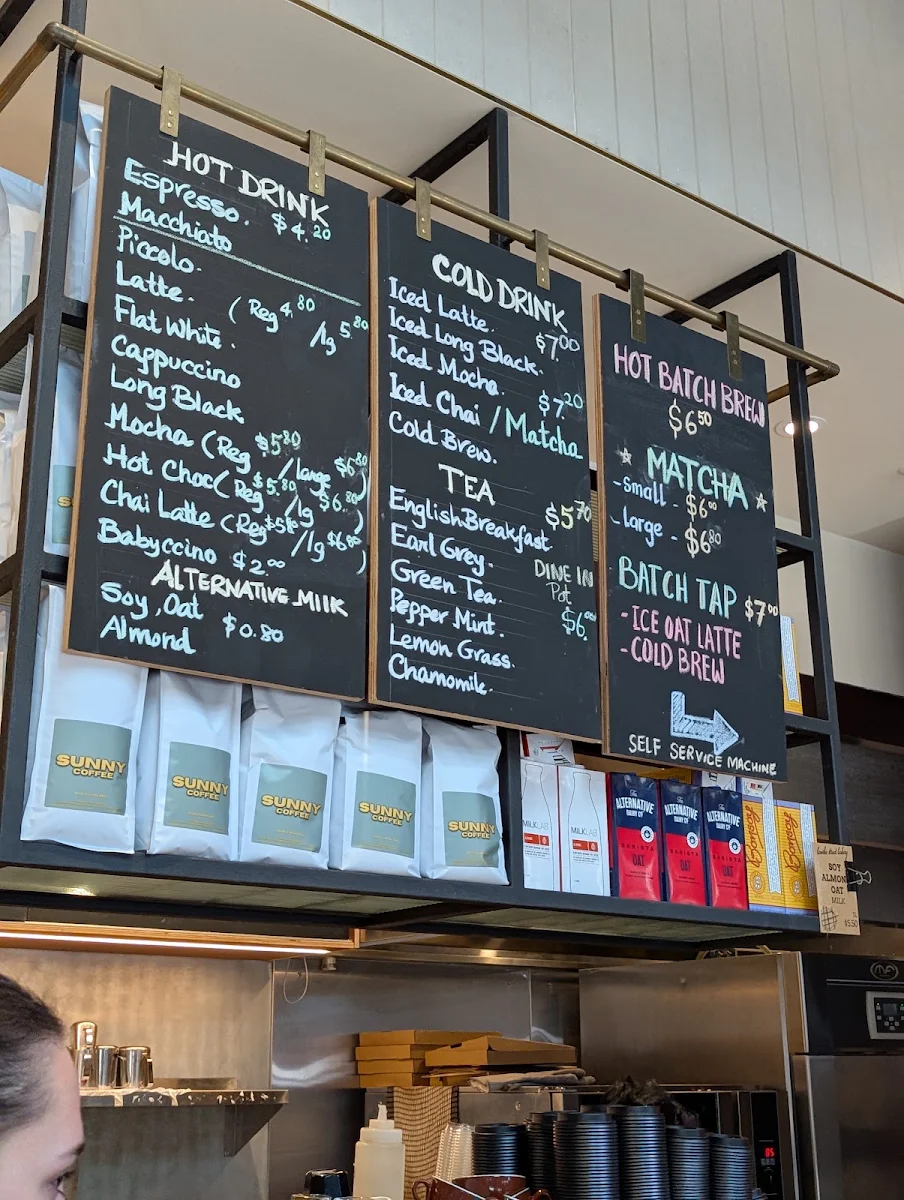 HOT DRINK
Espresso. $4.20
Macchiato
Piccolo.
Latte. (Reg 4.80 lg 5.80
Flat White.
Cappuccino
Long Black
Mocha (Reg $5.80 / large $6.80
Hot Choc (Reg $5.80 /lg $6.80)
Chai Latte (Reg /lg $6.80)
Babyccino $2.00
ALTERNATIVE MILK
Soy, Oat
Almond $0.80
COLD DRINK
Iced Latte. $7.00
Iced Long Black.
Iced Mocha. $7.20
Iced Chai / Matcha
Cold Brew.
TEA
English Breakfast $5.70
Earl Grey. DINE IN
Green Tea. Pot
Pepper Mint. $6.00
Lemon Grass.
Chamomile.
HOT BATCH BREW
$6.50
MATCHA
- Small - $6.00
- large - $6.80
BATCH TAP $7.00
- ICE OAT LATTE
- COLD BREW
SELF SERVICE MACHINE
SUNNY
COFFEE
SUNNY
COFFEE
SUNNY
COFFEE
SUNNY
COFFEE
SUNNY
COFFEE
MILKLAB
MILKLAB
The
ALTERNATIVE
DAIRY CO
BARISTA
OAT
The
ALTERNATIVE
DAIRY CO
BARISTA
OAT
The
ALTERNATIVE
DAIRY CO
BARISTA
OAT
Bonsoy
Bonsoy
SOY
ALMOND
OAT
MILK
$5.50